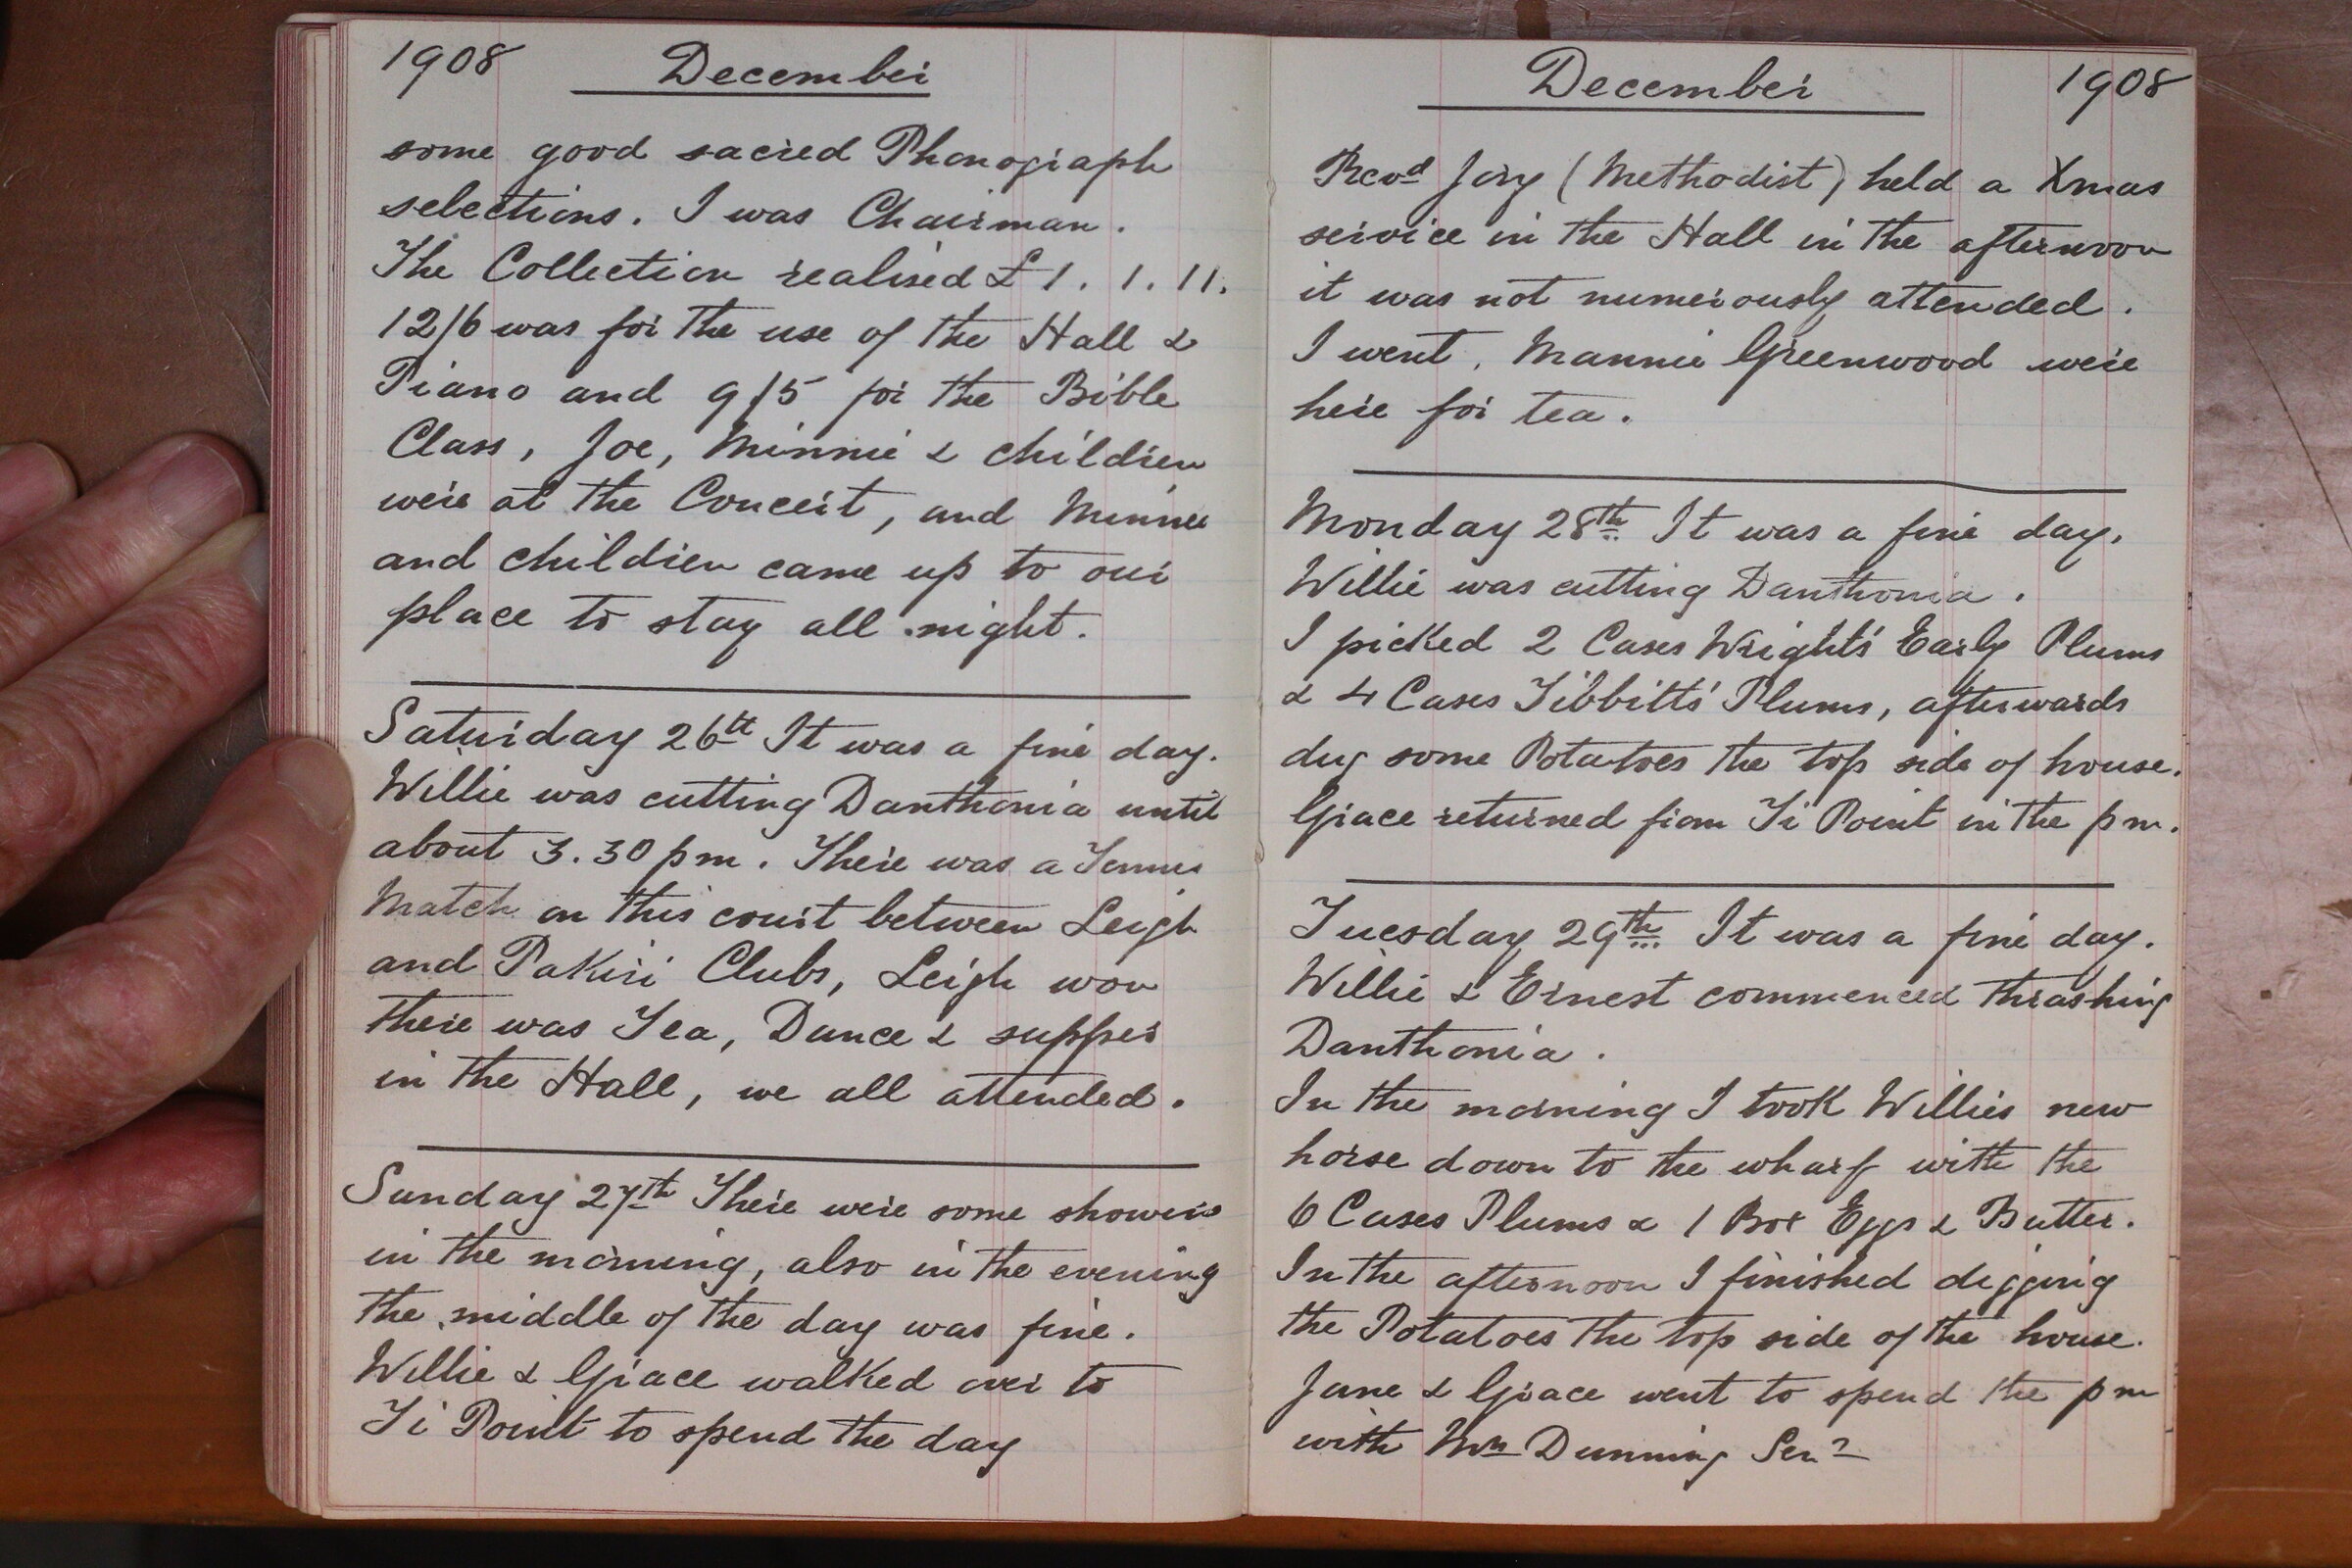 1908 December
some good sacred Phonograph
selections. I was Chairman.
The Collection realised £1.1.11.
12/6 was for the use of the Hall &
Piano and 9/5 for the Bible
Class, Joe, Minnie & children
were at the Concert, and Minnie
and children came up to our
place to stay all night.
Saturday 26th It was a fine day.
Willie was cutting Danthonia until
about 3.30 pm. There was a Tennis
Match on this court between Leigh
and Pakiri Clubs, Leigh won
there was Tea, Dance & supper
in the Hall, we all attended.
Sunday 27th There were some showers
in the morning, also in the evening
the middle of the day was fine.
Willie & Grace walked over to
Ti Point to spend the day
December 1908
Revd Jory (Methodist) held a Xmas
service in the Hall in the afternoon
it was not numerously attended.
I went. Mannie Greenwood were
here for tea.
Monday 28th It was a fine day.
Willie was cutting Danthonia.
I picked 2 Cases Wright's Early Plums
& 4 Cases Tibbitts' Plums, afterwards
dug some Potatoes the top side of house.
Grace returned from Ti Point in the pm.
Tuesday 29th It was a fine day.
Willie & Ernest commenced thrashing
Danthonia.
In the morning I took Willies new
horse down to the wharf with the
6 Cases Plums & 1 Box Eggs & Butter.
In the afternoon I finished digging
the Potatoes the top side of the house.
Jane & Grace went to spend the pm
with Mrs Dunning Senr